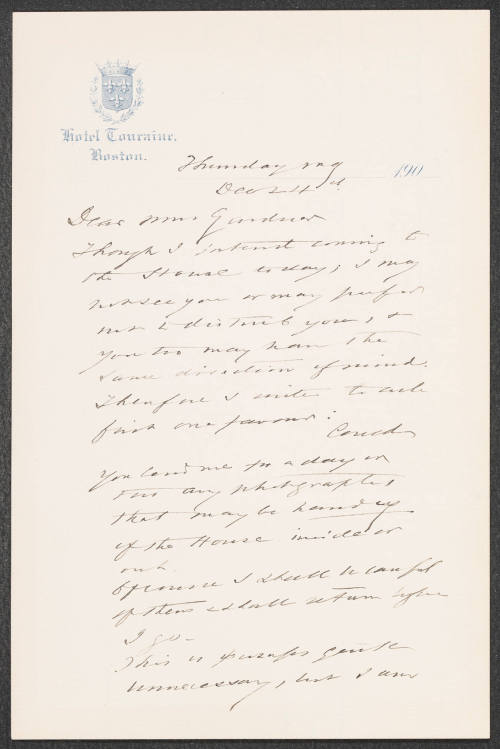 Hotel Touraine.
Boston.
Thursday 190
Dec 24th
Dear Mrs Gardner
Though I intend coming to
the House today; I may
not see you or may prefer
not to disturb you, &
you too may have the
same direction of mind.
Therefore I write to ask
first one favour:
Could
you lend me for a day or
two any photographs
that may be handy
of the House inside or
out.
Of course I shall be careful
of them & shall return before
I go —
This is perhaps quite
unnecessary, but I am